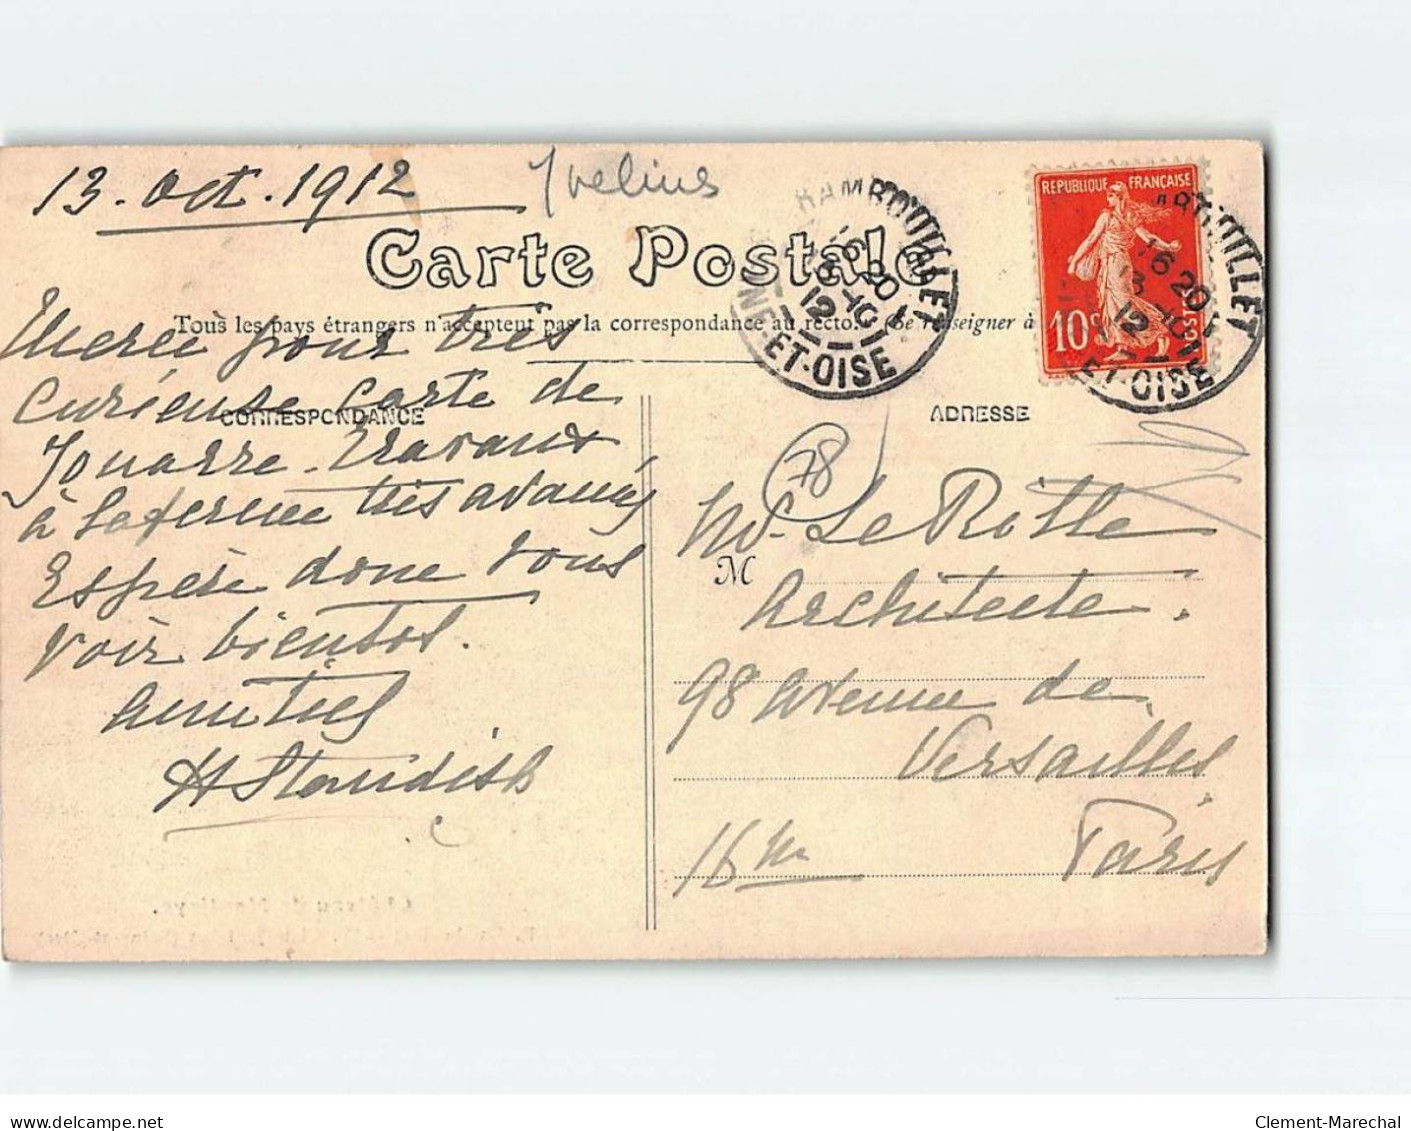 13. Oct. 1912
Yvelines
Carte Postale
Tous les pays étrangers n'acceptent pas la correspondance au recto. (Se renseigner à
RAMBOUILLET
16 20
13 -10
12
ET-OISE
REPUBLIQUE FRANÇAISE
10c
POSTES
RAMBOUILLET
16 20
13 -10
12
ET-OISE
CORRESPONDANCE
Merci pour très
curieuse carte de
Jouarre. Travaux
à Laferme très avancés
Espère donc vous
voir bientot.
Amitiés
H Standish
ADRESSE
78
M
Mr. Le Rille
Architecte.
98 avenue de
Versailles
16 me Paris
Delcampe.net
Clement-Marechal